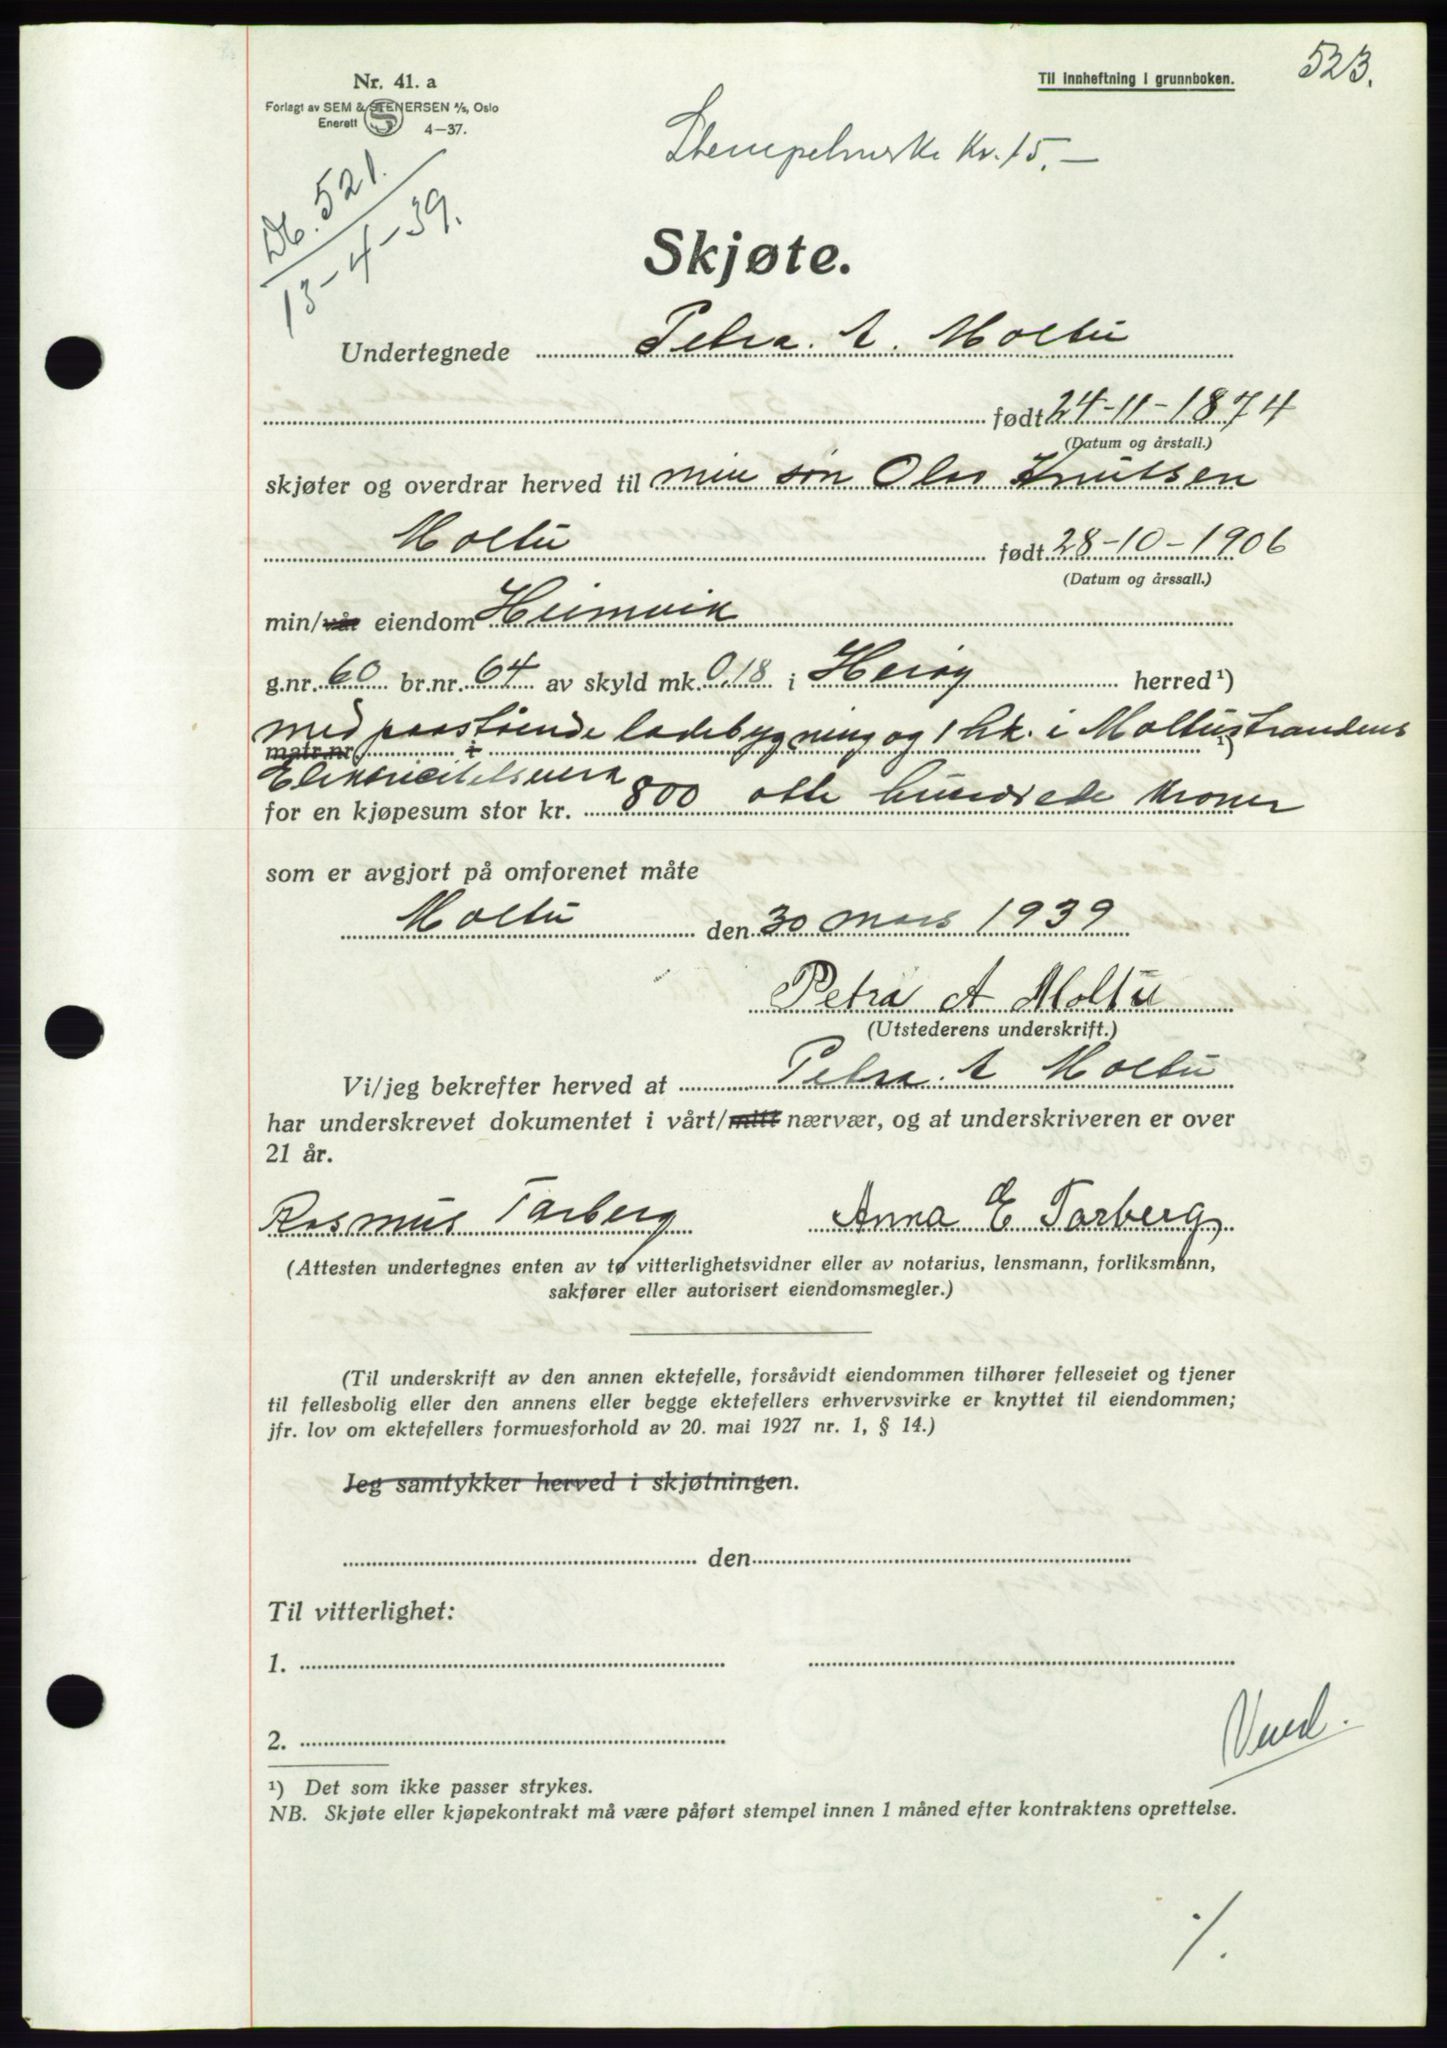 523.
Nr. 41. a
Til innheftning i grunnboken.
Forlagt av SEM & STENERSEN A/S, Oslo
Enerett
4—37.
Stempelmerke Kr. 15.—
Db. 521.
13-4-39.
Skjøte.
Undertegnede Petra. A. Moltu
født 24-11-1874
(Datum og årstall.)
skjøter og overdrar herved til min søn Olav Knutsen
Moltu født 28-10-1906
(Datum og årssall.)
min/vår eiendom Heimvik
g.nr. 60 br.nr. 64 av skyld mk. 0,18 i Herøy herred ¹)
med paastående ladebygning og 1 hk. i Moltustrandens
matr.nr. i ¹)
Elektricitetsverk
for en kjøpesum stor kr. 800 otte hundrede kroner
som er avgjort på omforenet måte
Moltu den 30 mars 1939
Petra A Moltu
(Utstederens underskrift.)
Vi/jeg bekrefter herved at Petra. A Moltu
har underskrevet dokumentet i vårt/mitt nærvær, og at underskriveren er over
21 år.
Rasmus Tarberg Anna E Tarberg
(Attesten undertegnes enten av to vitterlighetsvidner eller av notarius, lensmann, forliksmann,
sakfører eller autorisert eiendomsmegler.)
(Til underskrift av den annen ektefelle, forsåvidt eiendommen tilhører felleseiet og tjener
til fellesbolig eller den annens eller begge ektefellers erhvervsvirke er knyttet til eiendommen;
jfr. lov om ektefellers formuesforhold av 20. mai 1927 nr. 1, § 14.)
Jeg samtykker herved i skjøtningen.
den
Til vitterlighet:
1.
2.
Vend.
¹) Det som ikke passer strykes.
NB. Skjøte eller kjøpekontrakt må være påført stempel innen 1 måned efter kontraktens oprettelse.
./.